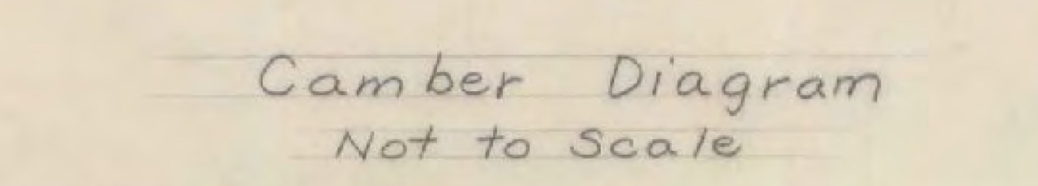 Camber Diagram
Not to Scale